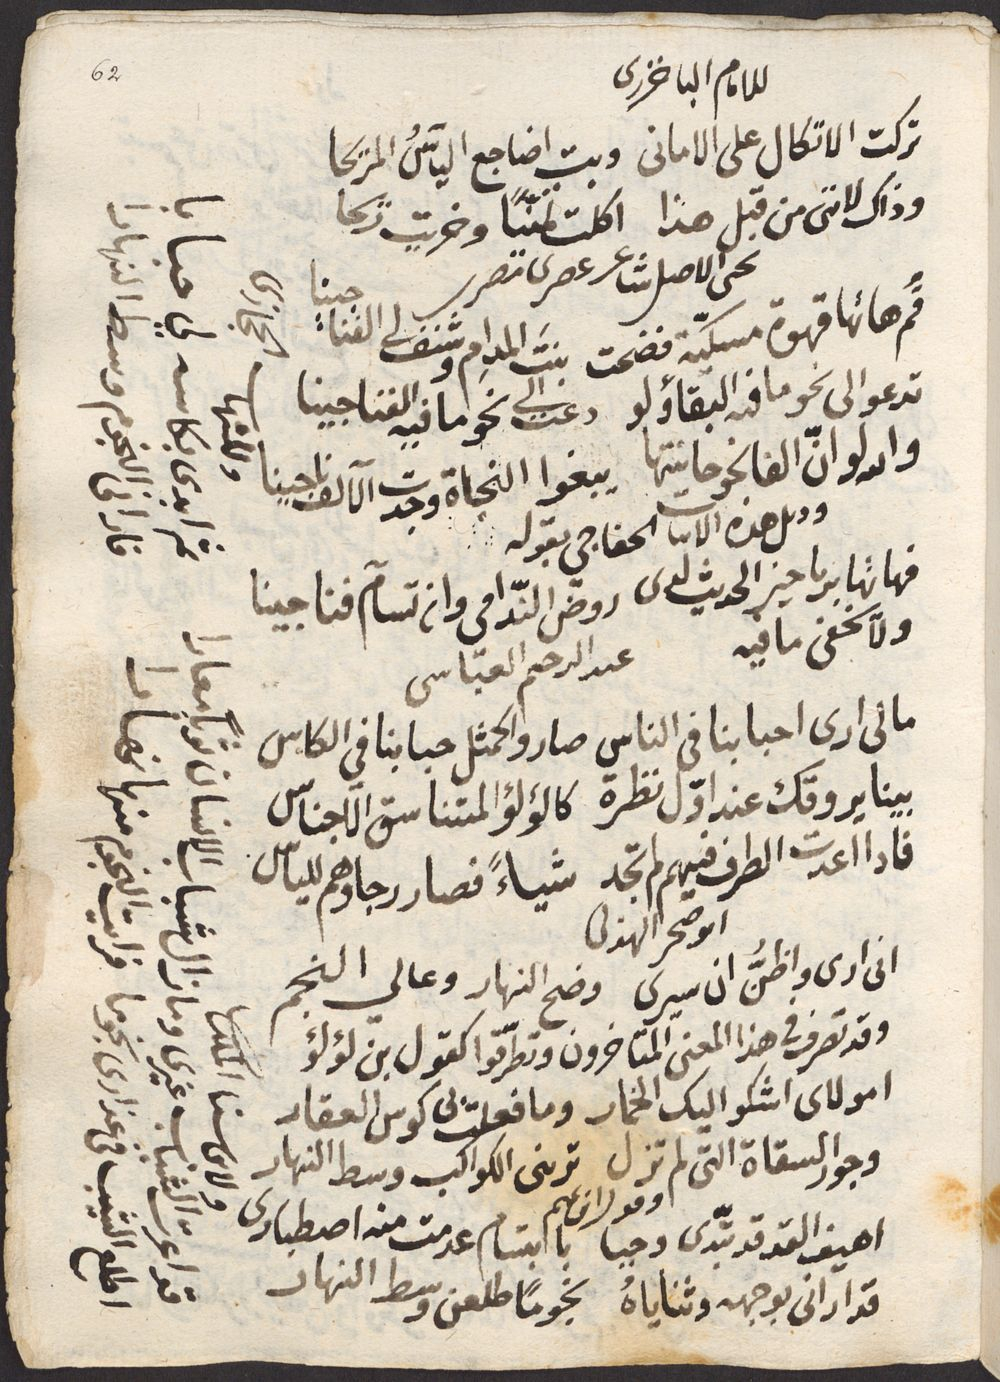 62
للامام الباخرزى
تركت الاتكال على الامانى وبت اضاجع اليأسُ المريحا
وذاك لاننى من قبل هذا اكلت تمنّيًا وخريت ريحا
شاعر عصرى
قُم هاتها قهوة مسكيّة فضحت بنت المدام وشنف لى الفناجينا
تدعو الى نحو ما فيه البقا ولو دعت الى نحو ما فيه الفنا جينا
والله لو انّ الفا نحو حانتها يبغوا النجاة وجدت الآلف ناجينا
هذه الابيات الخفاجى بقوله
فهاتها الحديث لدى روض الندّامى وان تسأم فناجينا
ولا يخفى ما فيه
عبد الرحيم العبّاسى
مالى ارى احبابنا فى الناس صاروا كمثل حبابنا فى الكاس
بينا يروقك عند اوّل نظرة كالؤلؤ المتناسق الاجناس
فاذا اعدت الطرف فيهم لم تجد شياءً فصار رجاوهم للياس
ابو صخر الهذلى
انى ارى واظنُّ ان سيرى وضح النهار وعالي النجم
وقد تصرف فى هذا المعنى المتاخرون وتطرّقوا كقول بن لؤلؤ
امولاى اشكو اليك الخمار وما فعلت بى كوس العقار
وجور السقاة التى لم تزل ترينى الكواكب وسط النهار
اهيف القد قد تبّدى وحيا با ابتسام عدمت منه اصطبارى
قد ارانى بوجهه وثناياهُ نجومًا طلعن وسط النهار
الحجازى
فارانى النجوم وسط النهار
ولابن سنا الملك
وما زال شباب الانسان ثوبا معارا
اطلع الشيب فى عذارى نجوما فرايت النجوم منها نهارا